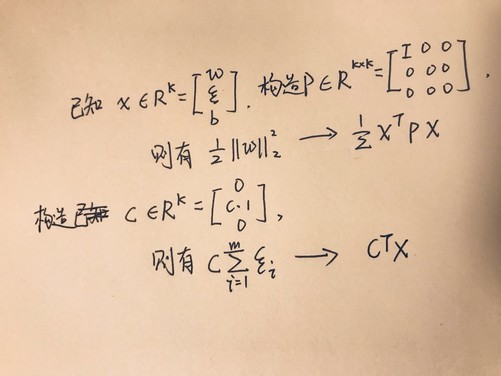 已知 x ∈ R^k = [w ξ b], 构造 P ∈ R^{k×k} = [I 0 0; 0 0 0; 0 0 0],
则有 1/2 ||w||_2^2 → 1/2 X^T P X
构造 C ∈ R^k = [0 C·1 0],
则有 C ∑_{i=1}^{m} ξ_i → C^T X